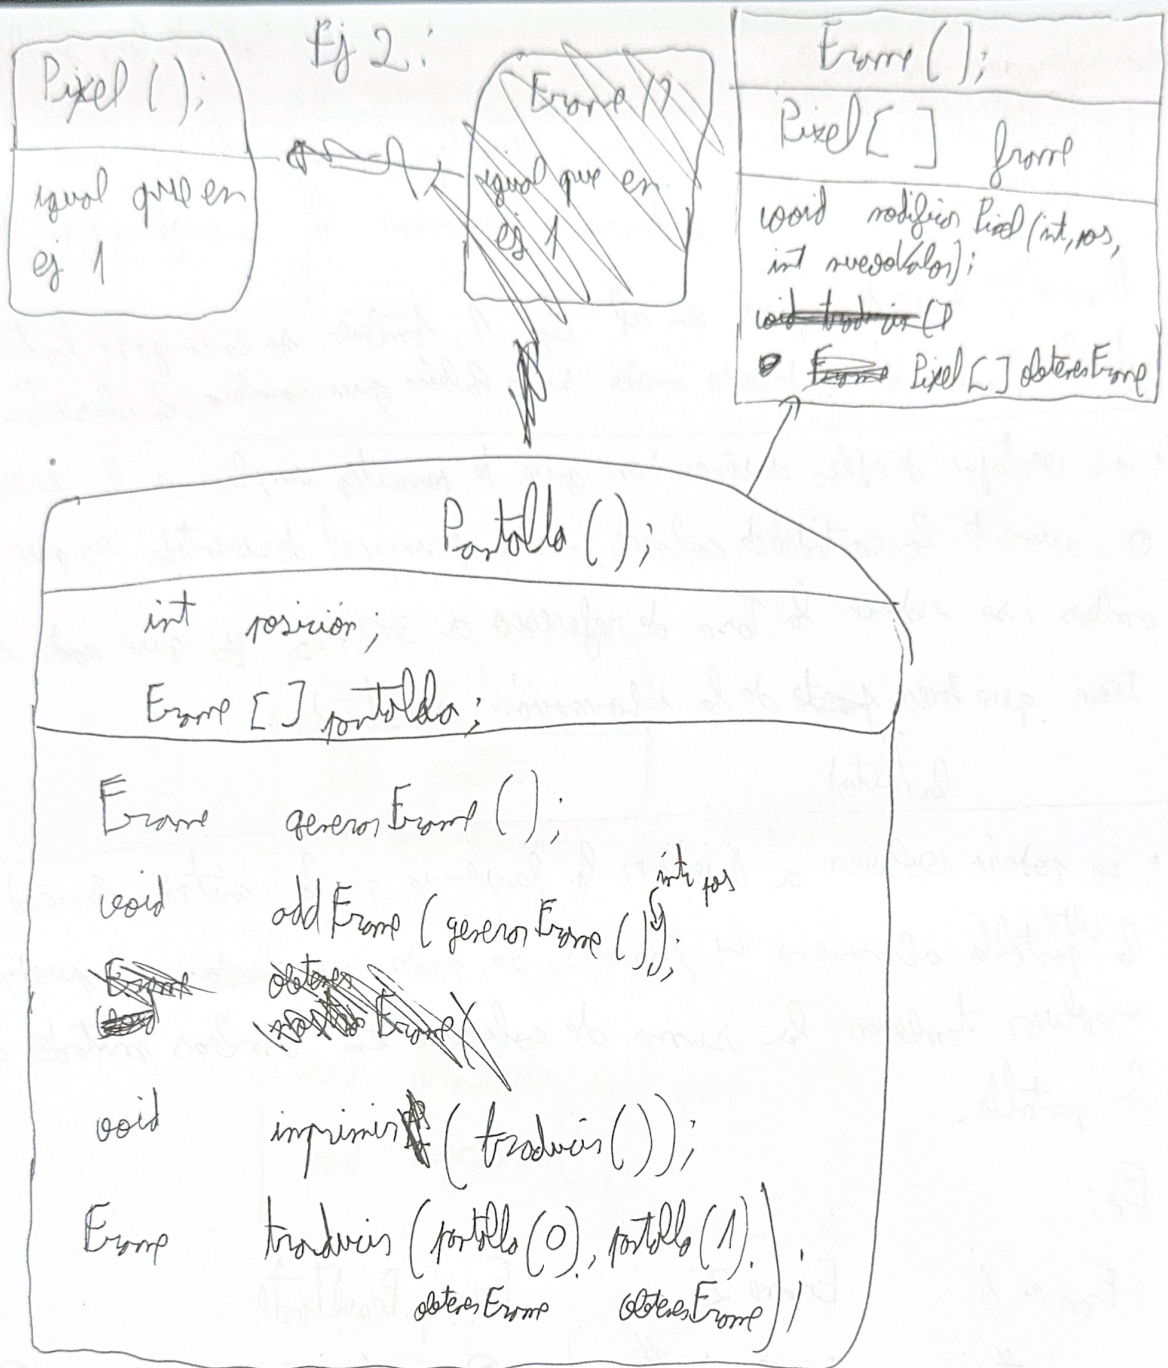 Ej 2:
Pixel ();
igual que en
ej 1
Frame ()
igual que en
ej 1
Frame ();
Pixel [ ] frame
void modificar Pixel (int, pos,
int nuevoValor);
void traducir ()
Frame Pixel [ ] obtenerFrame
Pantalla ();
int posición;
Frame [ ] pantalla;
Frame generarFrame ();
int pos
void addFrame (generarFrame () );
Frame obtener
Frame (
void imprimir (traducir ());
Frame traducir (pantalla (0). , pantalla (1). );
obtenerFrame obtenerFrame